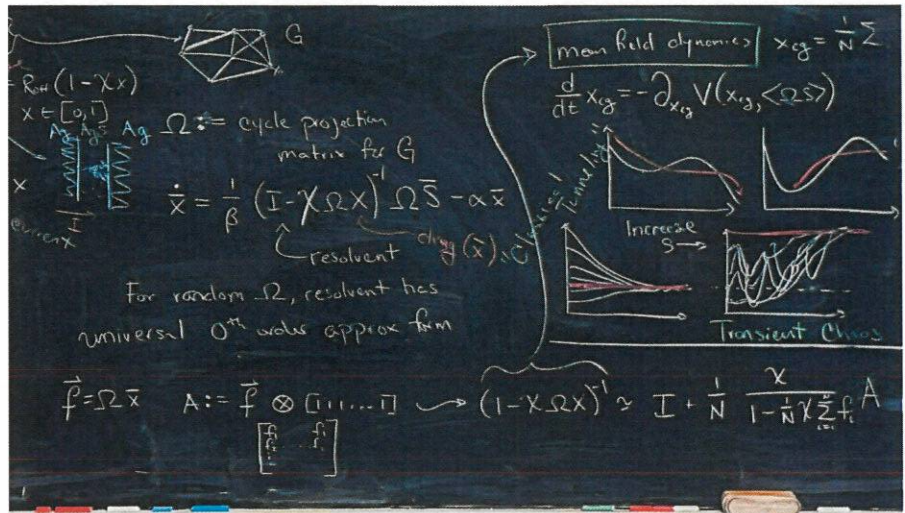 G
Roff (1 - χx)
x ∈ [0,1]
Ag Ag Ag
x
I
current
Ω := cycle projection
matrix for G
ẋ = 1/β (I - χΩX)⁻¹ Ω S̄ - αx̄
resolvent
diag (x̄)
For random Ω, resolvent has
universal 0th order approx form
f⃗ = Ω x̄
A := f⃗ ⊗ [1 1 1 ... 1]
(1 - χΩX)⁻¹ ≃ I + 1/N χ / (1 - 1/N χ Σ fᵢ) A
mean field dynamics
x_cg = 1/N Σ
d/dt x_cg = -∂_{x_cg} V(x_cg, <ΩS>)
Tunneling
Increase
S →
Transient Chaos